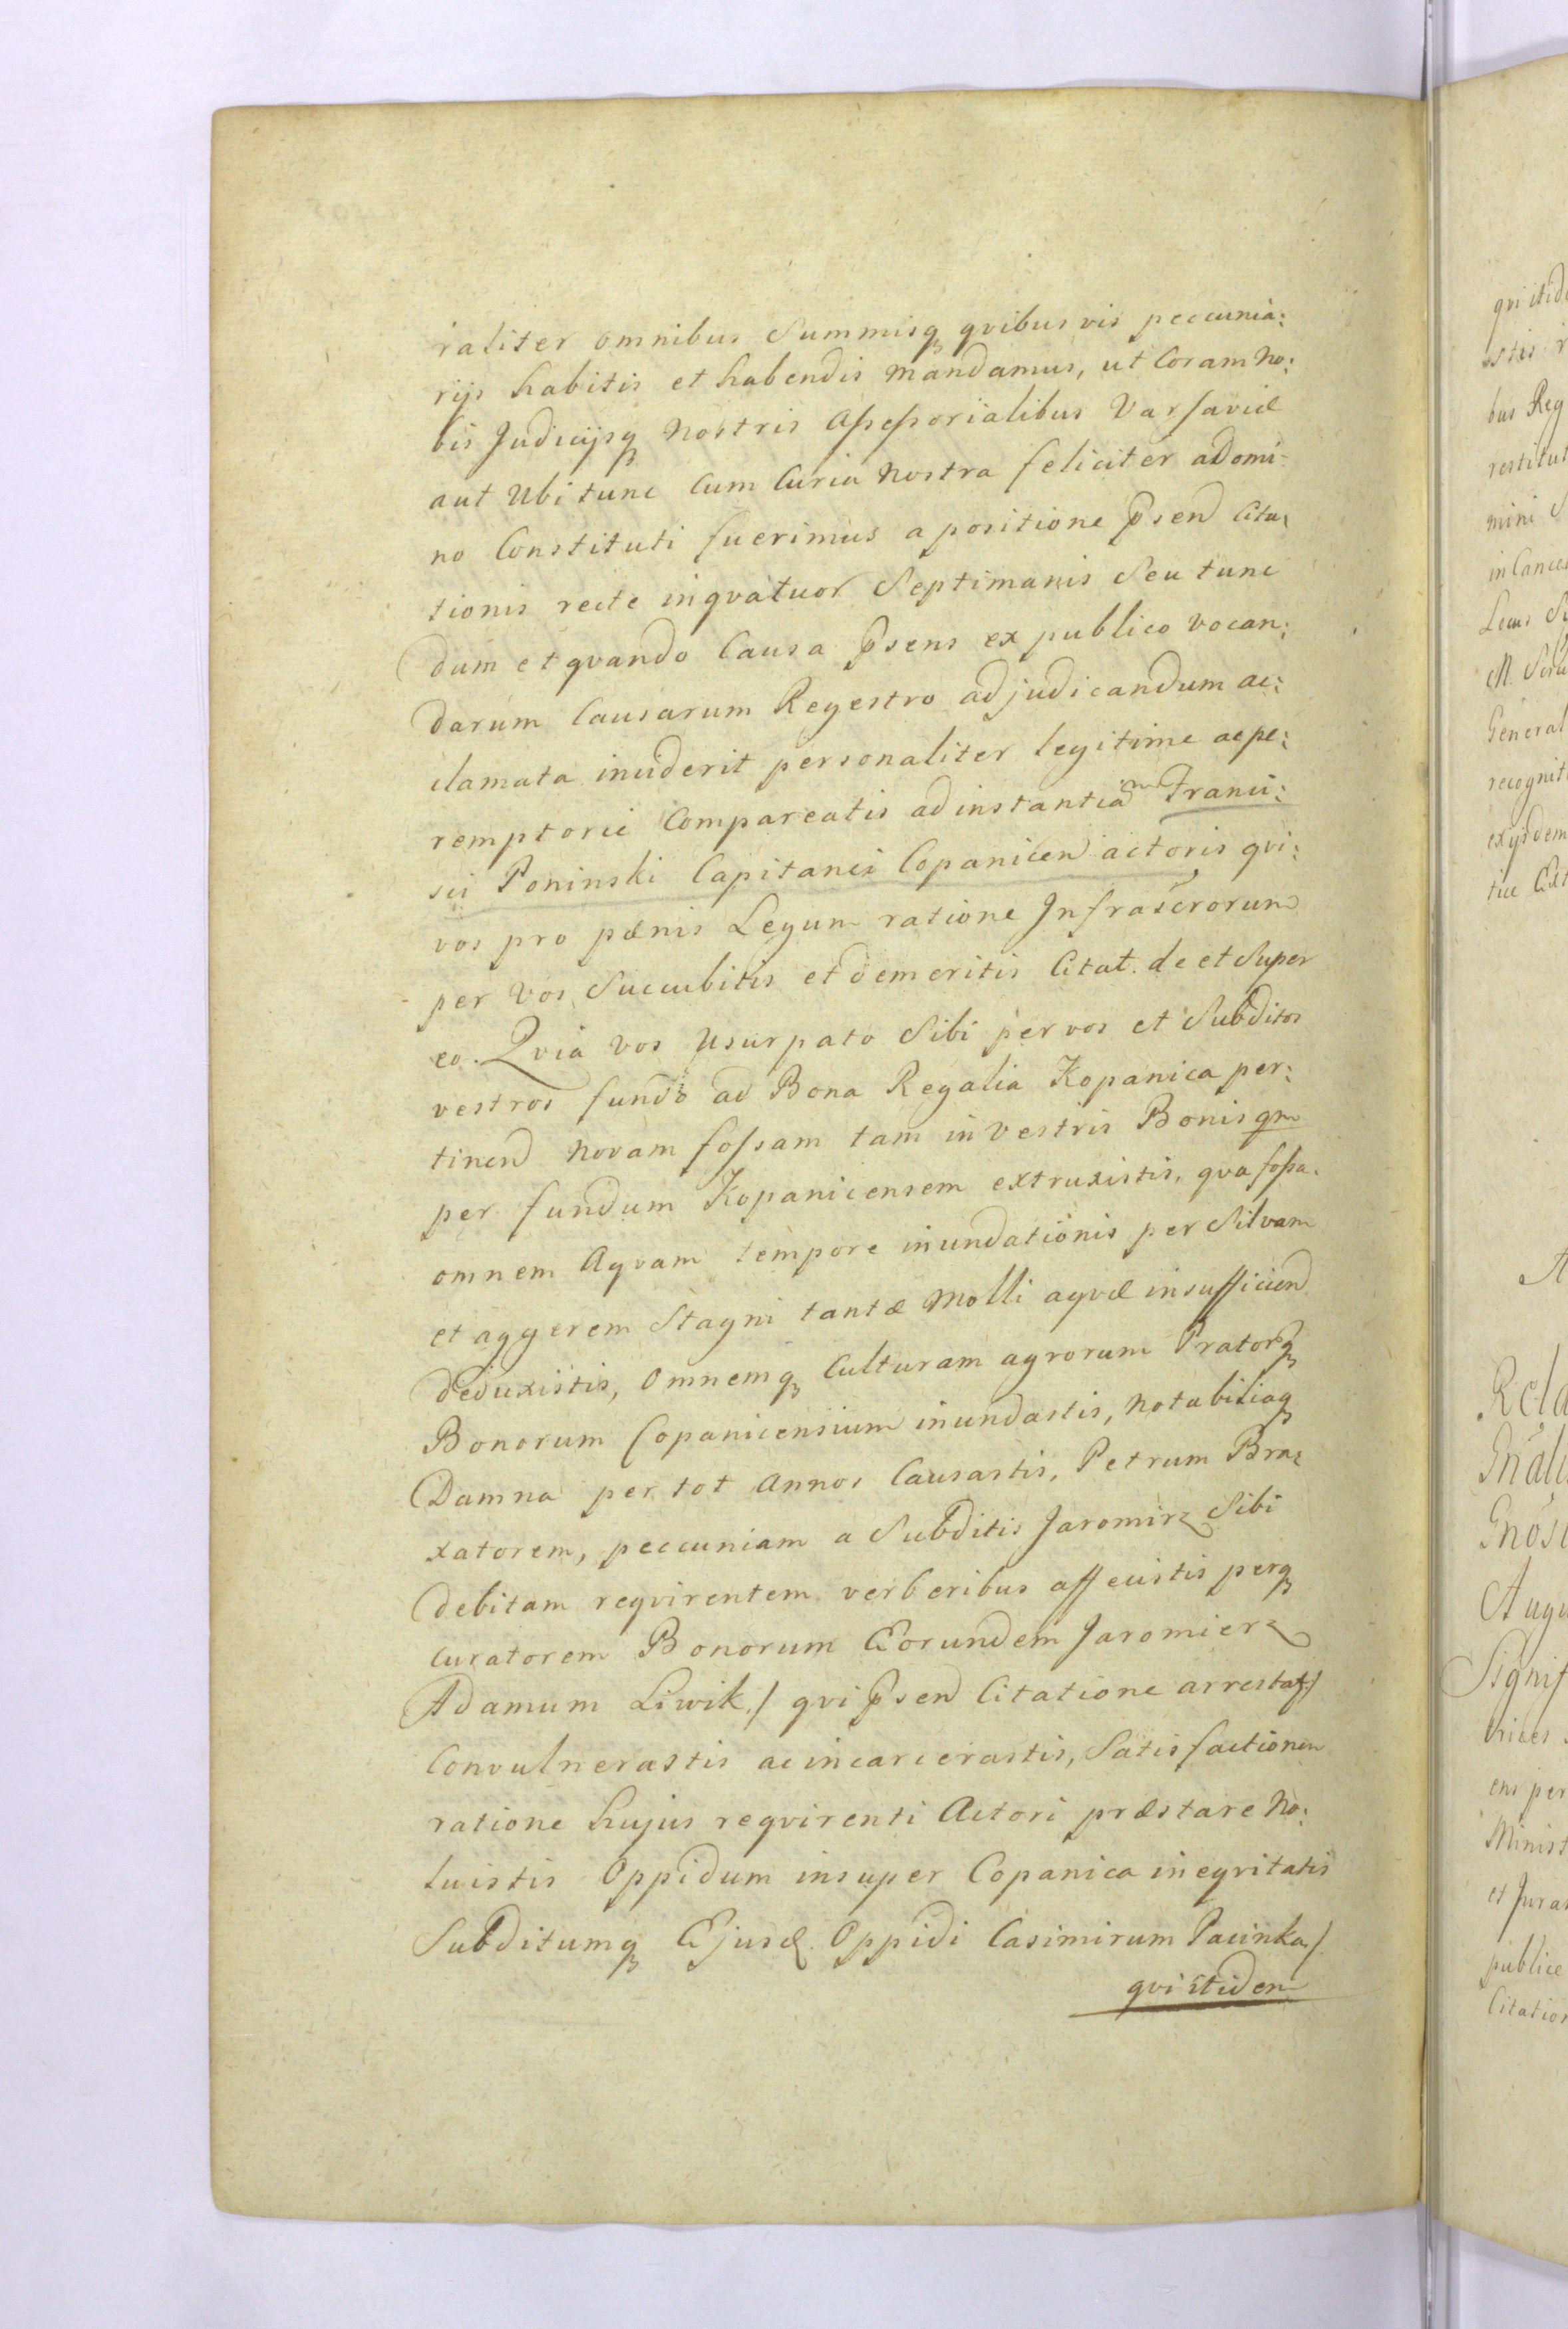 raliter omnibus Summisq₃ qvibus vis peccunia:
rijs habitis et habendis mandamus, ut Coram No:
bis Judicijsq₃ nostris Assessorialibus Varsaviæ
aut Ubi tunc Cum Curia nostra feliciter a Domi-
no Constituti fuerimus a positione Psend Cita:
tionis recte in qvatuor Septimanis Seu tunc
dum et qvando Causa Psens ex publico vocan:
darum Causarum Regestro ad judicandum ac:
clamata inciderit personaliter legitime ac pe:
remptorie Compareatis ad instantiam Franci:
sci Poninski Capitanei Copanicen actoris qvi:
vos pro pænis Legum ratione Infrascrorum
per Vos Succubitis et demeritis Citat. de et Super
eo. Qvia vos Usurpato Sibi per vos et Subditos
vestros fundo ad Bona Regalia Kopanica per:
tinend novam fossam tam in vestris Bonis qm
per fundum Kopanicensem extruxistis, qva fossa
omnem Aqvam tempore inundationis per Silvam
et aggerem Stagni tantæ Molli aqvæ insufficiend
deduxistis, Omnemq₃ Culturam agrorum Pratorq₃
Bonorum Copanicensium inundastis, notabiliaq₃
Damna per tot Annos Causastis, Petrum Bra:
xatorem, peccuniam a Subditis Jaromirz Sibi
debitam reqvirentem verberibus affecistis perq₃
curatorem Bonorum Eorundem Jaromierz
Adamum Liwik./ qvi Psend Citatione arrestat/
Convulnerastis ac incarcerastis, Satisfactionem
ratione hujus reqvirenti Actori præstare No:
luistis Oppidum insuper Copanica ineqvitatis
Subditumq₃ Ejusd. Oppidi Casimirum Pacinka/
qvi itidem
qvi itid
stis
bus Reg
restitut
mini S
in Cance
Locus
M. Scri
General
recognit
exijsdem
tuæ Ext
A
Rela
Gnali
Gnosi
Augu
Signif
ens per
Minist
et Jura
publice
Citation